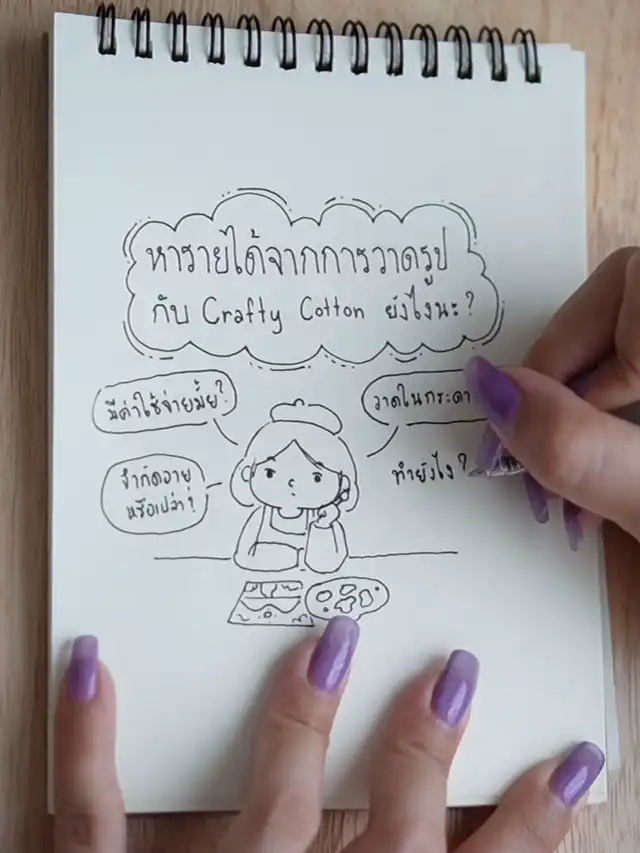 หารายได้จากการวาดรูป
กับ Crafty Cotton ยังไงนะ?
มีค่าใช้จ่ายมั้ย?
วาดในกระดา
จำกัดอายุ
หรือเปล่า?
ทำยังไง?